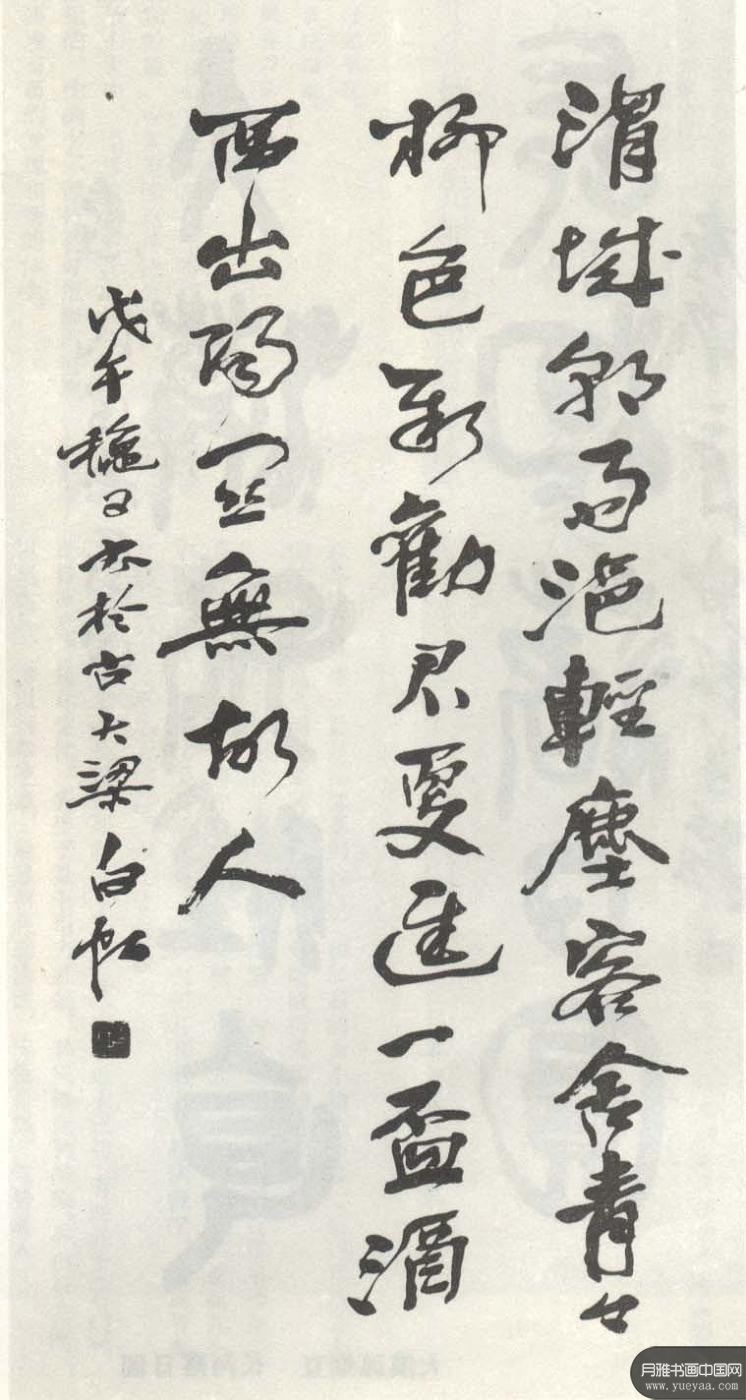 渭城朝雨浥輕塵客舍青々
柳色新勸君更進一盃酒
西出陽關無故人
戊午穐日書於古大梁白
月雅书画中国网
www.yueyaa.com